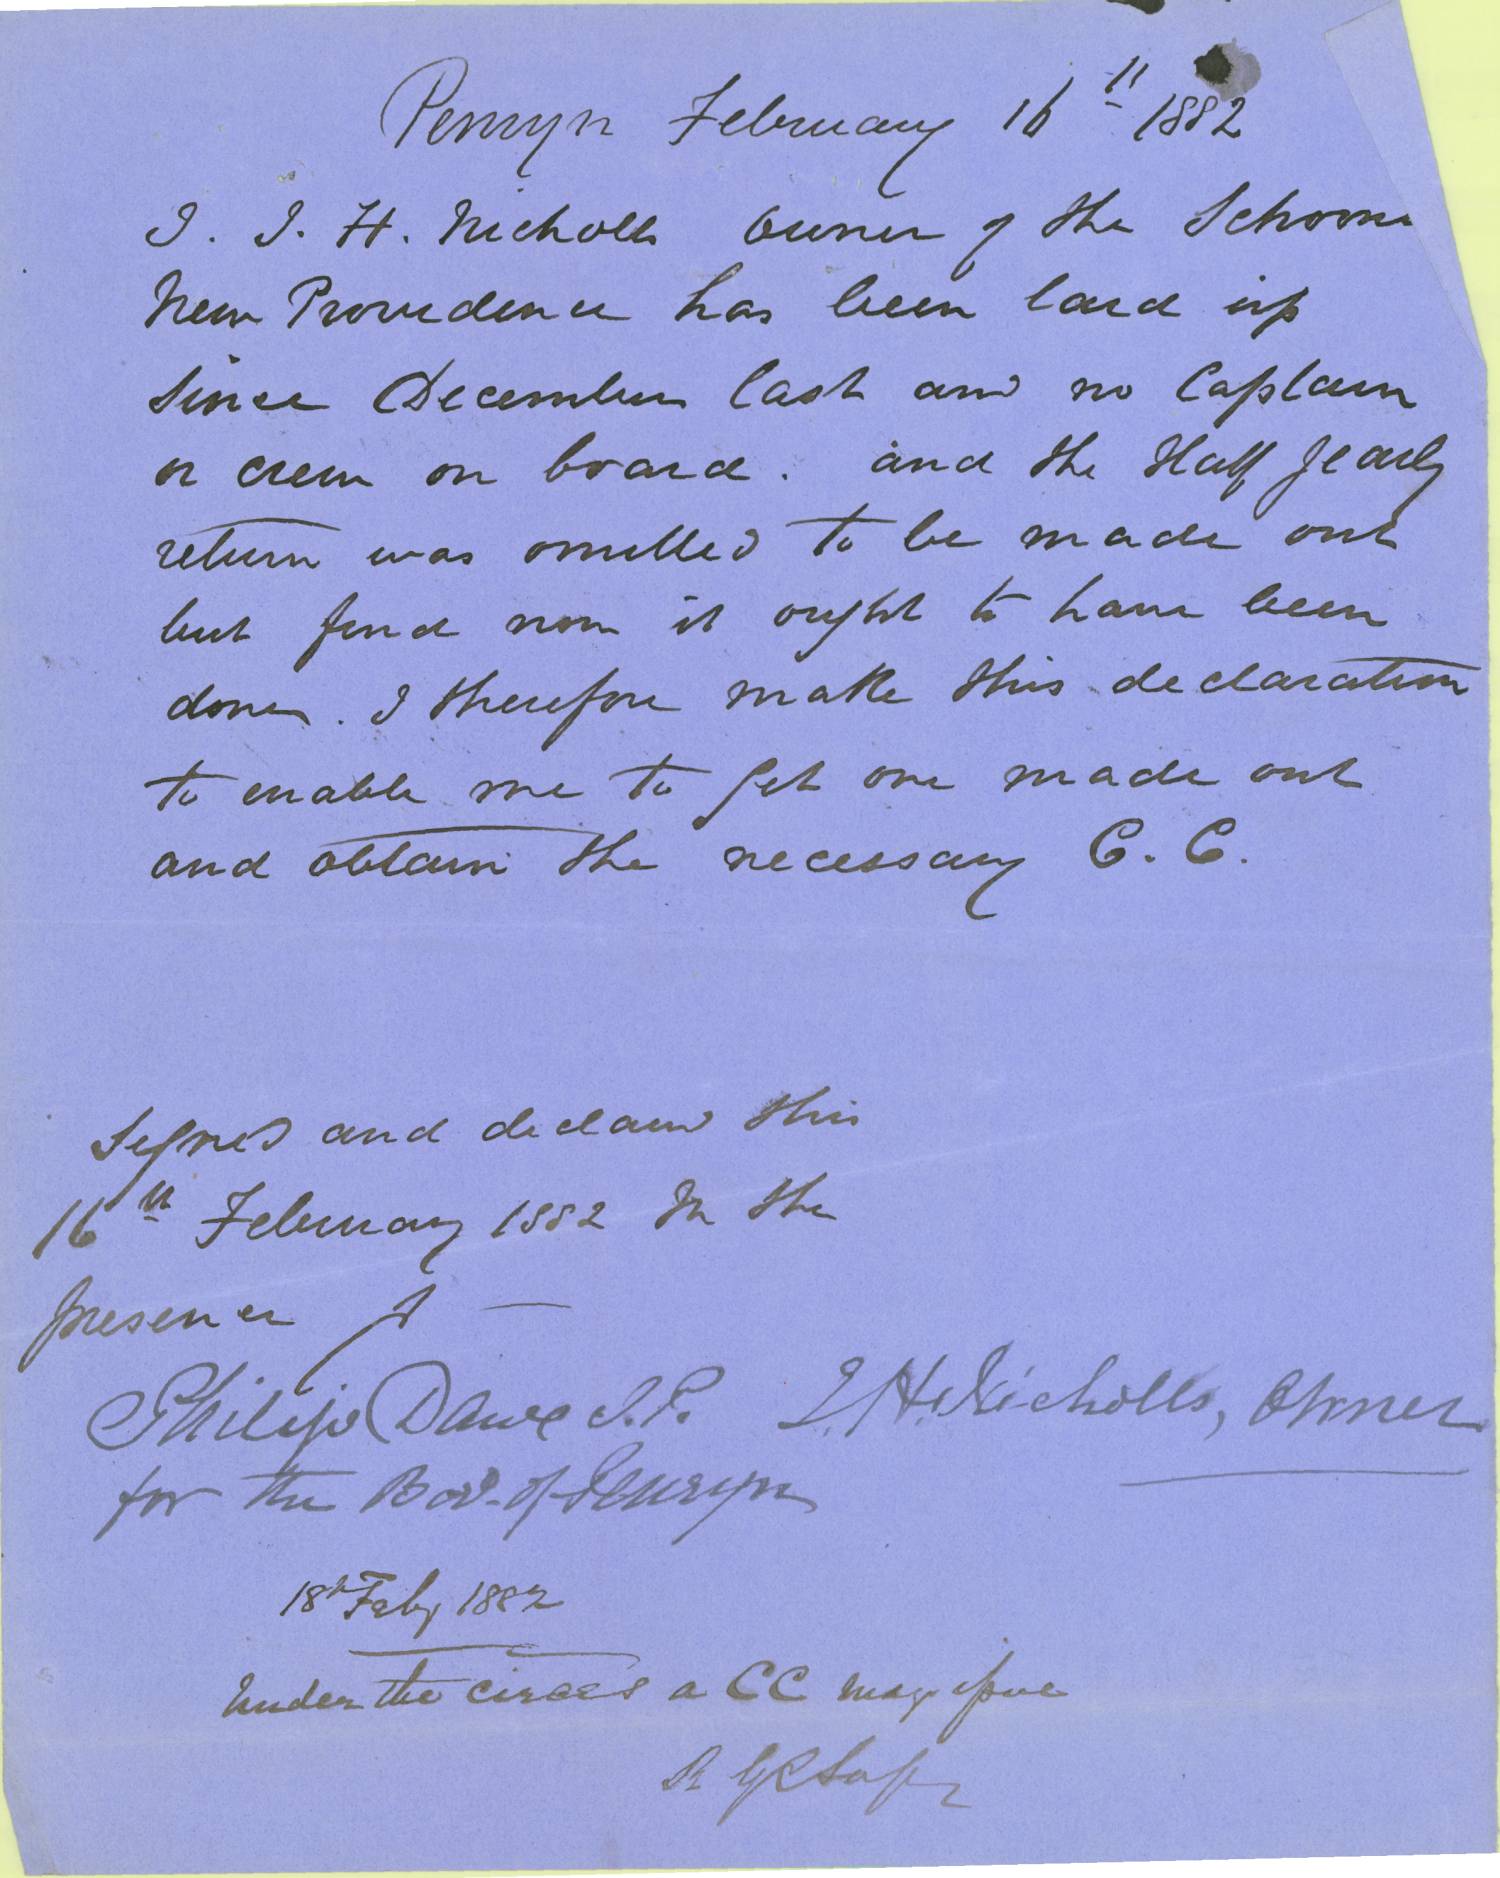 Penryn February 16th 1882
I. I. H. Nicholls Owner of the Schoone
New Providence has been laid up
since December last and no Captain
or crew on board. and the Half yearly
return was omitted to be made out
but find now it ought to have been
done. I therefore make this declaration
to enable me to get one made out
and obtain the necessary C. C.
Signed and declared this
16th February 1882 In the
presence of —
Philip Dawe J.P. I. H. Nicholls, Owner
for the Bor. of Penryn
18th Feby 1882
Under the circes a CC may issue